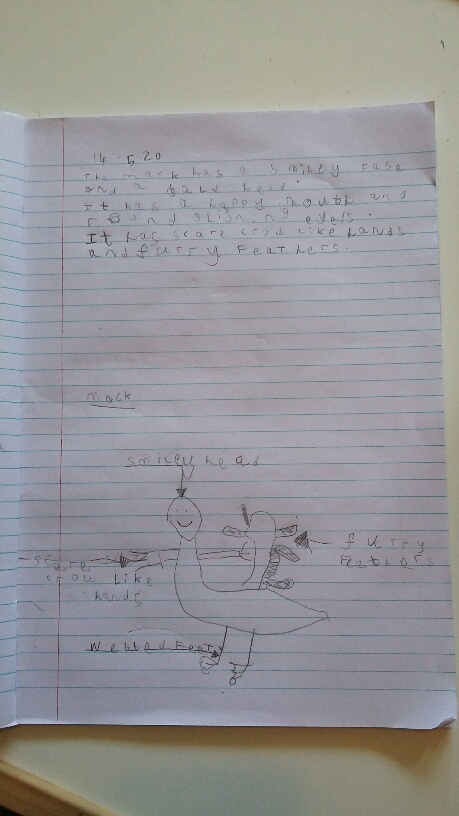 14.5.20
The mack has a smiley fase
and a bald head.
It has a happy mouth and
round shining eyes.
It has scare crow like hands
and furry feathers.
mack
smiley head
furry
feathers
scare
crow like
hands
webbed feat